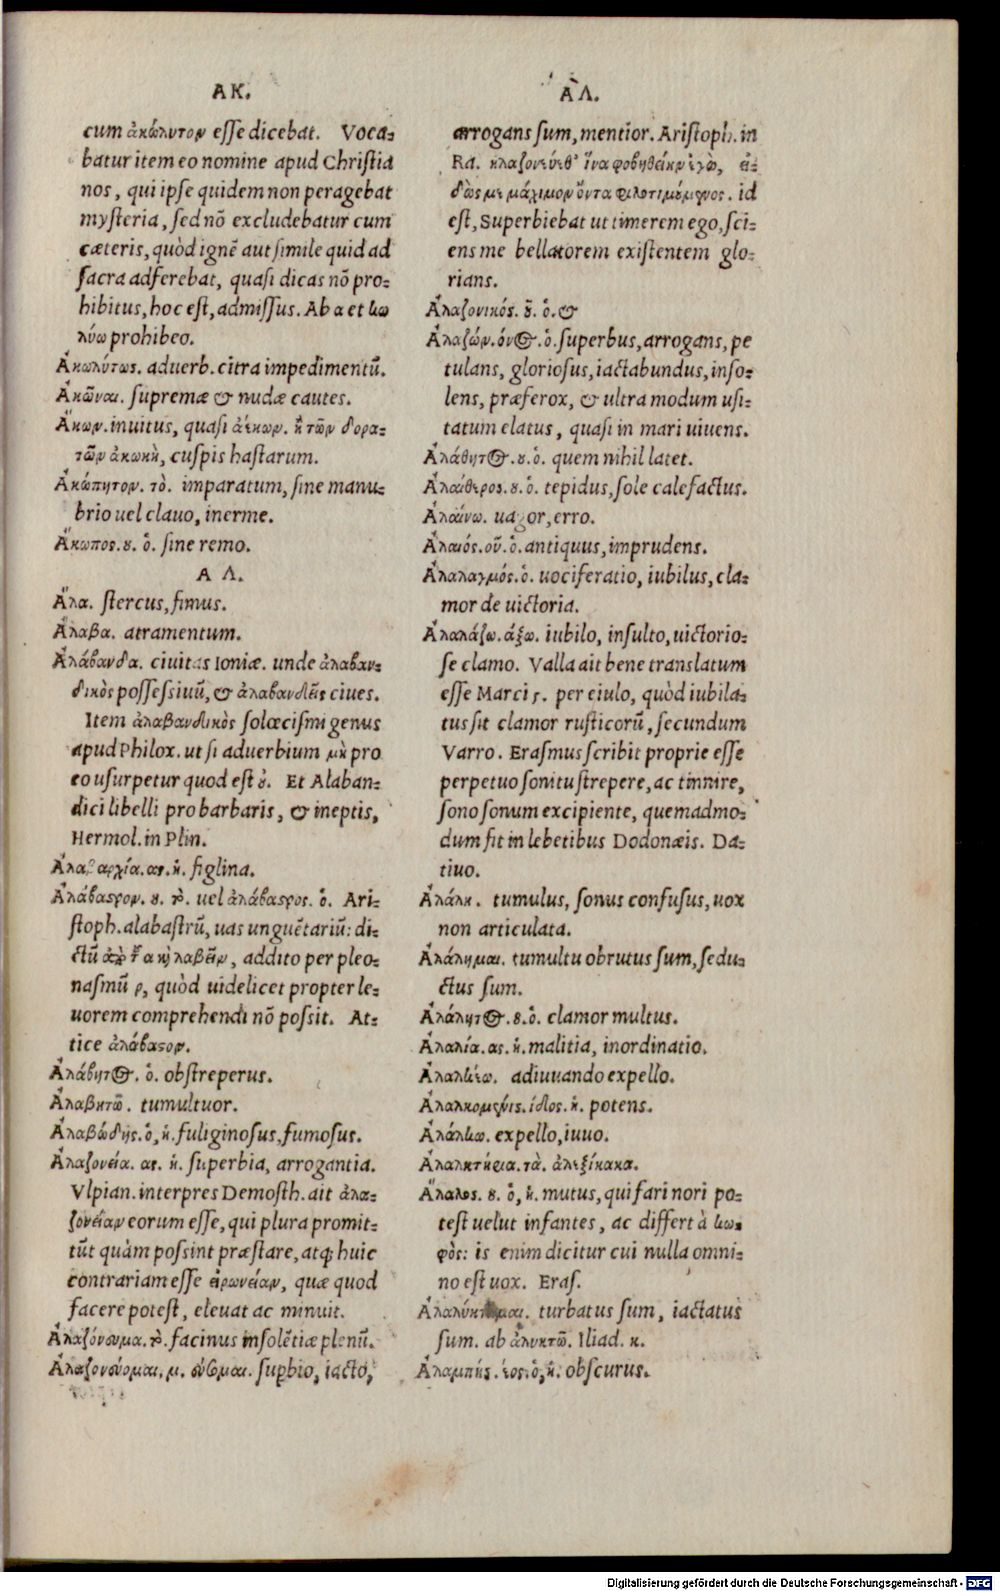 ΑΚ.
cum ἀκώλυτον esse dicebat. Voca-
batur item eo nomine apud Christia
nos, qui ipse quidem non peragebat
mysteria, sed nõ excludebatur cum
cæteris, quòd ignẽ aut simile quid ad
sacra adferebat, quasi dicas nõ pro-
hibitus, hoc est, admissus. Ab α et κω
λύω prohibeo.
Ἀκωλύτως. aduerb. citra impedimentũ.
Ἀκῶναι. supremæ & nudæ cautes.
Ἄκων. inuitus, quasi ἀέκων. ἢ τῶν δορα-
τῶν ἀκωκὴ, cuspis hastarum.
Ἀκώπητον. τὸ. imparatum, sine manu-
brio uel clauo, inerme.
Ἄκωπος. ου. ὁ. sine remo.
Α Λ.
Ἄλα. stercus, fimus.
Ἄλαβα. atramentum.
Ἀλάβανδα. ciuitas Ioniæ. unde ἀλαβαν-
δικὸς possessiuũ, & ἀλαβανδεῖς ciues.
Item ἀλαβανδικὸς solœcismi genus
apud Philox. ut si aduerbium μὴ pro
eo usurpetur quod est οὐ. Et Alaban-
dici libelli pro barbaris, & ineptis,
Hermol. in Plin.
αρχία. ας. ἡ. figlina.
Ἀλάβαστρον. ου. τὸ. uel ἀλάβαστρος. ὁ. Ari-
stoph. alabastrũ, uas unguẽtariũ: di-
ctũ λαβεῖν, addito per pleo-
nasmũ ρ, quòd uidelicet propter le-
uorem comprehendi nõ possit. At-
tice ἀλάβαστον.
Ἀλάβητος. ὁ. obstreperus.
Ἀλαβητῶ. tumultuor.
Ἀλαβώδης. ὁ, ἡ. fuliginosus, fumosus.
Ἀλαζονεία. ας. ἡ. superbia, arrogantia.
Vlpian. interpres Demosth. ait ἀλα-
ζονείαν eorum esse, qui plura promit-
tũt quàm possint præstare, atq; huic
contrariam esse εἰρωνείαν, quæ quod
facere potest, eleuat ac minuit.
Ἀλαζόνευμα. τὸ. facinus insolẽtiæ plenũ.
Ἀλαζονεύομαι. μ. εύσομαι. supbio, iacto,
ΑΛ.
arrogans sum, mentior. Aristoph. in
Ra. ἵνα φοβηθείην ἐγὼ, εἰ-
δώς με μάχιμον ὄντα φιλοτιμούμενος. id
est, Superbiebat ut timerem ego, sci-
ens me bellatorem existentem glo-
rians.
Ἀλαζονικός. οῦ. ὁ. &
Ἀλαζών. όνος. ὁ. superbus, arrogans, pe
tulans, gloriosus, iactabundus, inso-
lens, præferox, & ultra modum usi-
tatum elatus, quasi in mari uiuens.
Ἀλάθητος. ου. ὁ. quem nihil latet.
Ἀλαίθερος. ου. ὁ. tepidus, sole calefactus.
Ἀλαίνω. uagor, erro.
Ἀλαιός. οῦ. ὁ. antiquus, imprudens.
Ἀλαλαγμός. ὁ. uociferatio, iubilus, cla-
mor de uictoria.
Ἀλαλάζω. άξω. iubilo, insulto, uictorio-
se clamo. Valla ait bene translatum
esse Marci 5. per eiulo, quòd iubila-
tus sit clamor rusticorũ, secundum
Varro. Erasmus scribit proprie esse
perpetuo sonitu strepere, ac tinnire,
sono sonum excipiente, quemadmo-
dum fit in lebetibus Dodonæis. Da-
tiuo.
Ἀλάλη. tumulus, sonus confusus, uox
non articulata.
Ἀλάλημαι. tumultu obrutus sum, sedu-
ctus sum.
Ἀλάλητος. ου. ὁ. clamor multus.
Ἀλαλία. ας. ἡ. malitia, inordinatio.
Ἀλαλκέω. adiuuando expello.
Ἀλαλκομενηίς. ίδος. ἡ. potens.
Ἀλάλκω. expello, iuuo.
Ἀλαλκτήρια. τὰ. ἀλεξίκακα.
Ἄλαλος. ου. ὁ, ἡ. mutus, qui fari nori po-
test uelut infantes, ac differt à κω-
φὸς: is enim dicitur cui nulla omni-
no est uox. Eras.
Ἀλαλύκτημαι. turbatus sum, iactatus
sum. ab ἀλυκτῶ. Iliad. κ.
Ἀλαμπής. έος. ὁ, ἡ. obscurus.
Digitalisierung gefördert durch die Deutsche Forschungsgemeinschaft - DFG